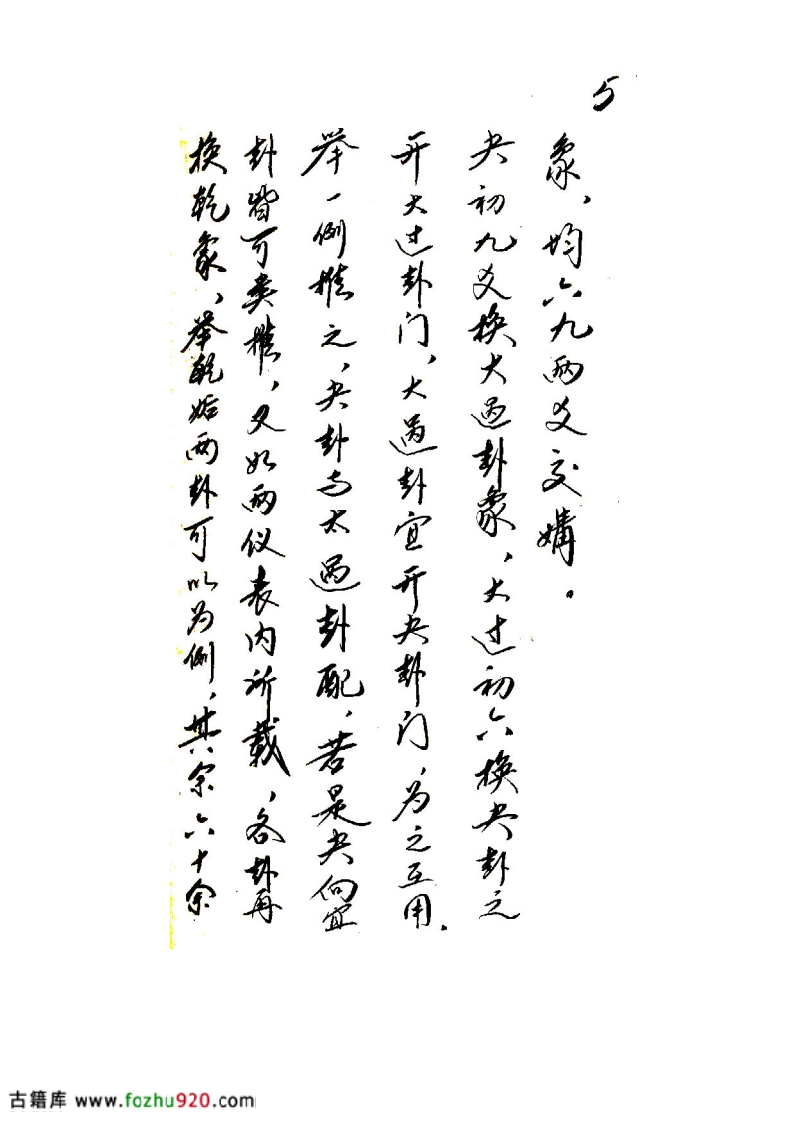 5
换乾象,举乾姤两卦可以为例,其余六十余
卦皆可类推,又如两仪表内所载,各卦再
举一例推之,夬卦与太過卦配,若是夬向宜
开大过卦门,大過卦宜开夬卦门,为之互用.
夬初九爻换大過卦象,大过初六换夬卦之
象、均六九两爻交媾。
古籍库 www.fozhu920.com